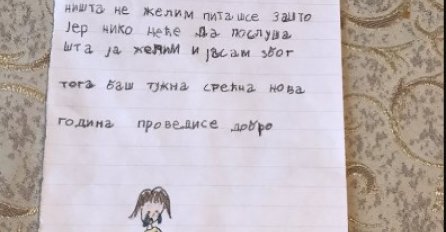 ништа не желим питашсе зашто
јер нико неће да послуша
шта ја желим и јасам због
тога баш тужна срећна нова
година проведисе добро